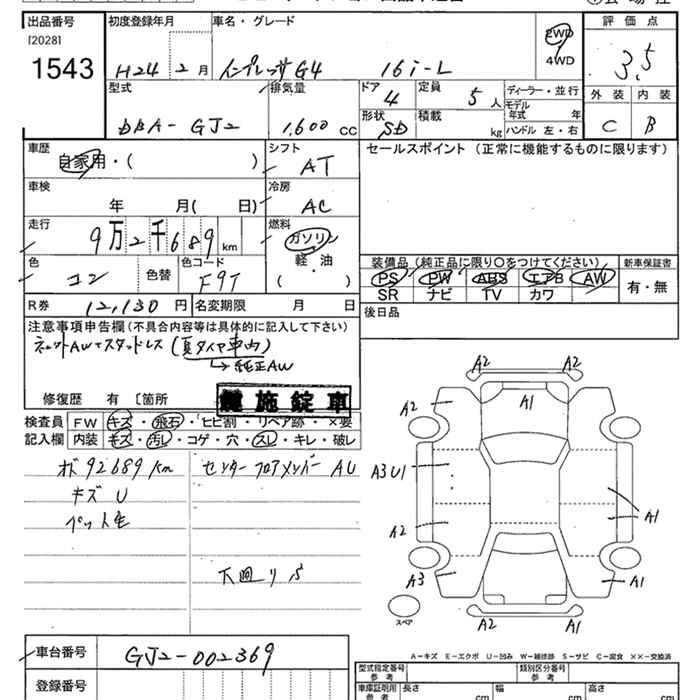 出品番号 初度登録年月 車名・グレード 評価点
[2028]
1543 H24 2月 インプレッサG4 16i-L 2WD 3.5
4WD
型式 排気量 ドア 定員 ディーラー・並行 外装 内装
4 5人 モデル年式 年
DBA-GJ2 1,600cc 形状 SD 積載 kg ハンドル 左・右 C B
車歴 シフト セールスポイント (正常に機能するものに限ります)
自家用・( ) AT
車検 冷房
年 月( 日) AC
走行 燃料
9万2千689km ガソリン
軽・油
( )
色 色替 色コード 装備品 (純正品に限り○をつけてください) 新車保証書
コン F9T PS PW ABS エアB AW 有・無
SR ナビ TV カワ
R券 12,130円 名変期限 月 日 後日品
注意事項申告欄(不具合内容等は具体的に記入して下さい)
(夏タイヤ車内)
→純正AW
修復歴 有 [箇所 鍵施錠車
検査員 FW キズ・飛石・ヒビ割・リペア跡・×要
記入欄 内装 キズ・汚レ・コゲ・穴・スレ・キレ・破レ
92689km センターフロアメンバー AU
キズ U
ペット毛
下廻りS
A2 A2
A2 A1
A3U1
A2 A1
A3 A1
スペア
A2 A1
A-キズ E-エクボ U-凹み W-補修跡 S-サビ C-腐食 XX-交換済
車台番号 GJ2-002369
登録番号
型式指定番号 参考 類別区分番号 参考
車庫証明用 参考 長さ cm 幅 cm 高さ cm